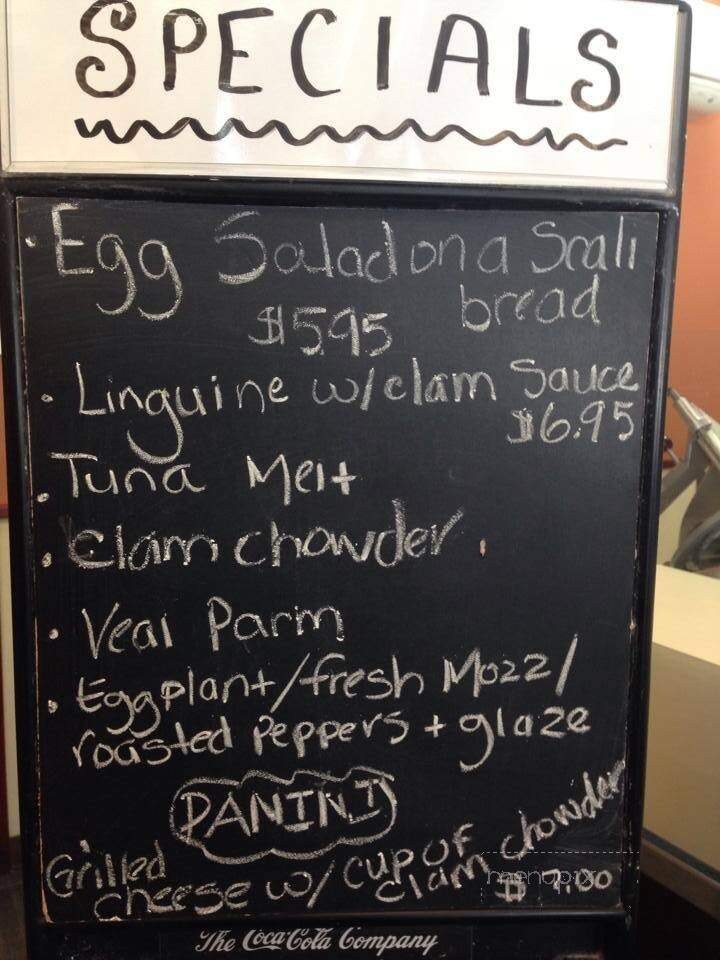 SPECIALS
· Egg Salad on a Scali
bread
$5.95
· Linguine w/clam Sauce
$6.95
· Tuna Melt
· Clam chowder
· Veal Parm
· Eggplant/fresh Mozz/
roasted peppers + glaze
PANINI
Grilled
cheese w/ cup of
clam chowder
$9.00
The Coca-Cola Company